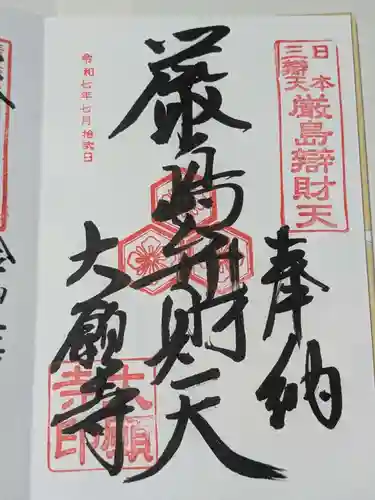 日本
三辯天
厳島辯財天
奉納
厳島弁財天
令和七年七月拾弐日
大願寺
大願
寺印